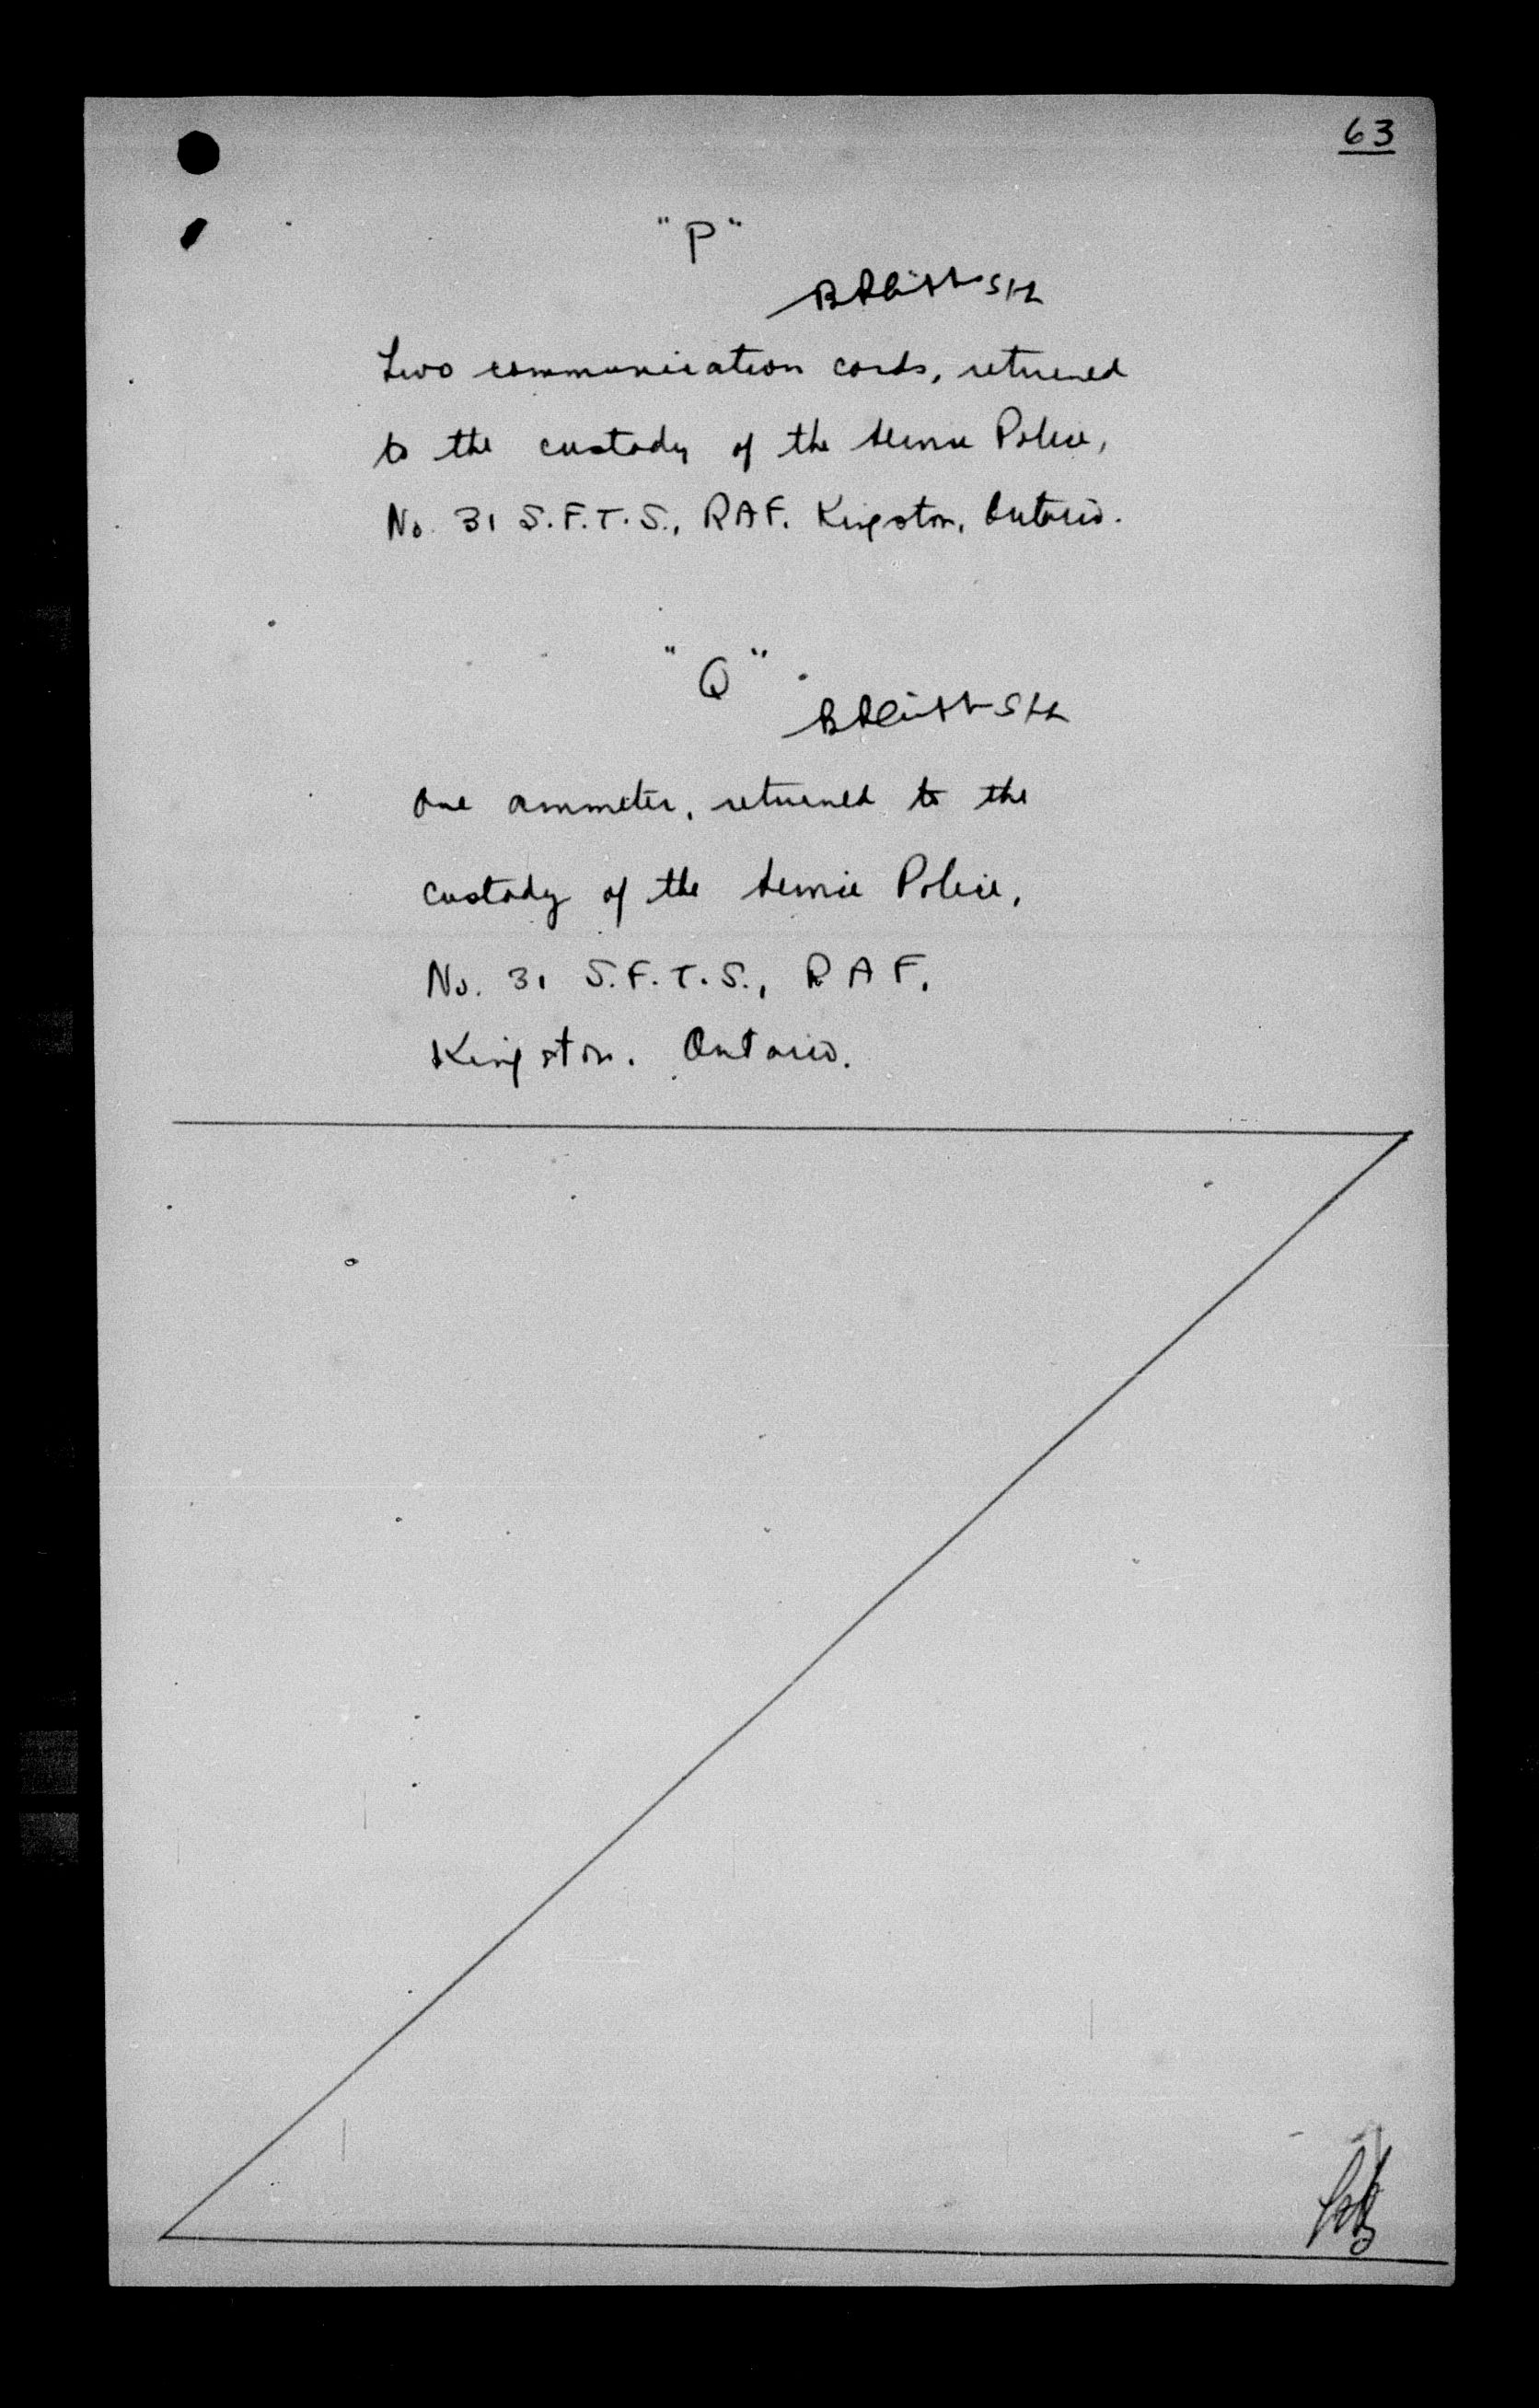 63
"P"
Two communication cords, returned
to the custody of the Service Police,
No. 31 S.F.T.S., RAF. Kingston, Ontario.
"Q"
One ammeter, returned to the
custody of the Service Police,
No. 31 S.F.T.S., RAF.
Kingston. Ontario.